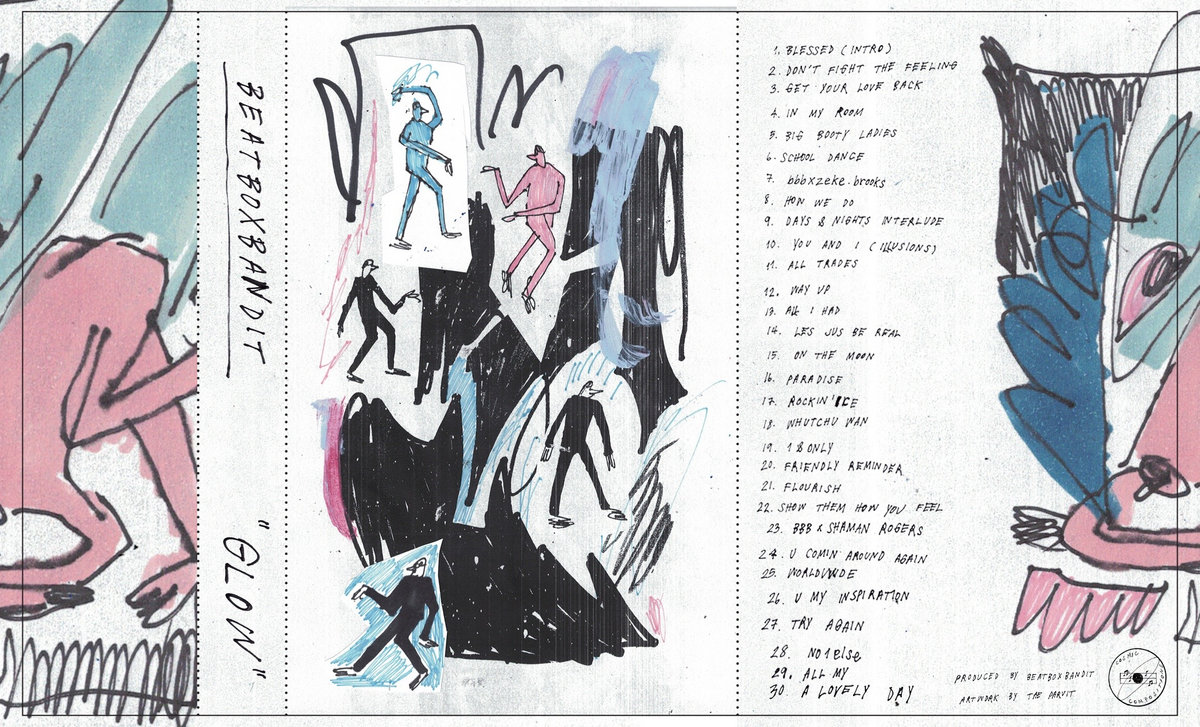 BEATBOXBANDIT
"GLOW"
1. BLESSED (INTRO)
2. DON'T FIGHT THE FEELING
3. GET YOUR LOVE BACK
4. IN MY ROOM
5. BIG BOOTY LADIES
6. SCHOOL DANCE
7. bbbxzeke.brooks
8. HOW WE DO
9. DAYS & NIGHTS INTERLUDE
10. YOU AND I (ILLUSIONS)
11. ALL TRADES
12. WAY UP
13. ALL I HAD
14. LES JUS BE REAL
15. ON THE MOON
16. PARADISE
17. ROCKIN' ICE
18. WHUTCHU WAN
19. 1 & ONLY
20. FRIENDLY REMINDER
21. FLOURISH
22. SHOW THEM HOW YOU FEEL
23. BBB x SHAMAN ROGERS
24. U COMIN AROUND AGAIN
25. WORLDWIDE
26. U MY INSPIRATION
27. TRY AGAIN
28. NO 1 else
29. ALL MY
30. A LOVELY DAY
PRODUCED BY BEATBOXBANDIT
ARTWORK BY THE DARVIT
COSMIC